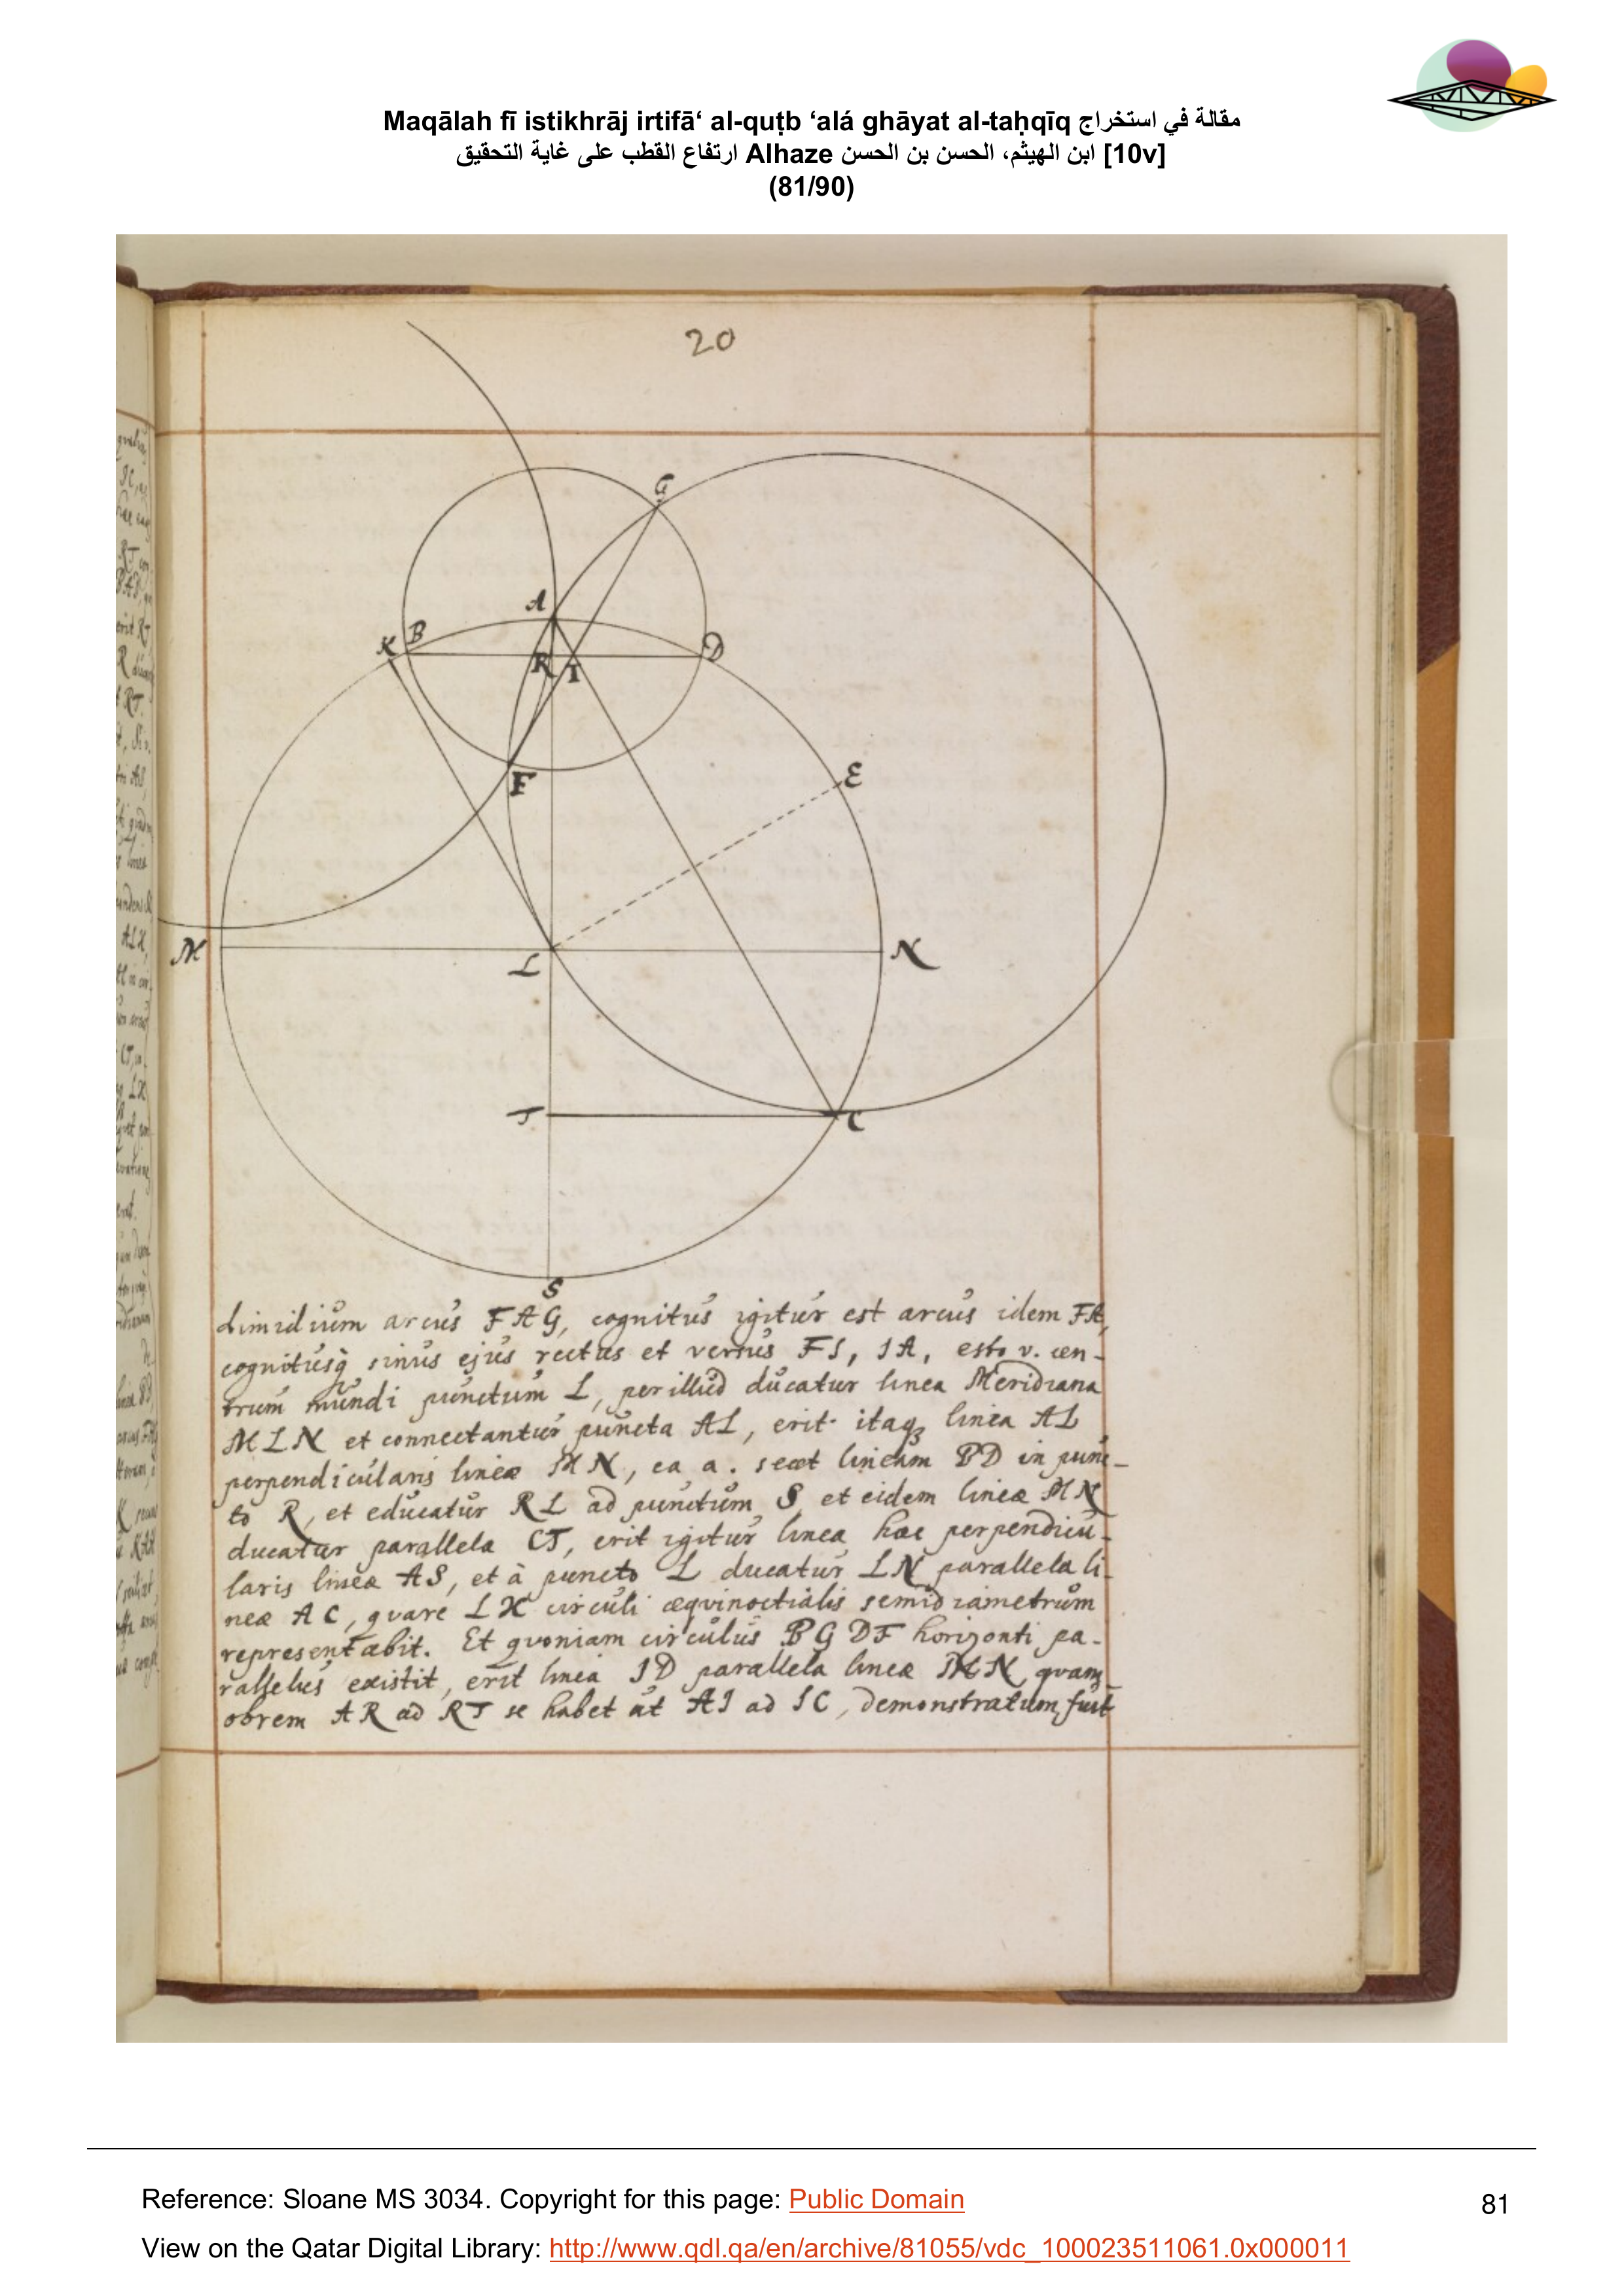 Maqālah fī istikhrāj irtifā‘ al-quṭb ‘alá ghāyat al-taḥqīq مقالة في استخراج
ارتفاع القطب على غاية التحقيق Alhaze ابن الهيثم، الحسن بن الحسن [10v]
(81/90)
20
G
A
K B D
R I
F E
M L N
T C
S
dimidium arcus FAG, cognitus igitur est arcus idem FA,
cognitusq̀ sinus ejus rectus et versus FI, IA, esto v. cen-
trum mundi punctum L, per illud ducatur linea Meridiana
MLN et connectantur puncta AL, erit itaq; linea AL
perpendicularis lineæ MN, ea a. secet lineam BD in punc-
to R, et educatur RL ad punctum S et eidem lineæ MN
ducatur parallela CT, erit igitur linea hæc perpendicu-
laris lineæ AS, et à puncto L ducatur LN parallela li-
neæ AC, quare LK circuli æquinoctialis semidiametrum
representabit. Et quoniam circulus BGDF horizonti pa-
rallelus existit, erit linea ID parallela lineæ MN, quam-
obrem AR ad RT se habet ut AI ad IC, demonstratum fuit
Reference: Sloane MS 3034. Copyright for this page: Public Domain
81
View on the Qatar Digital Library: http://www.qdl.qa/en/archive/81055/vdc_100023511061.0x000011